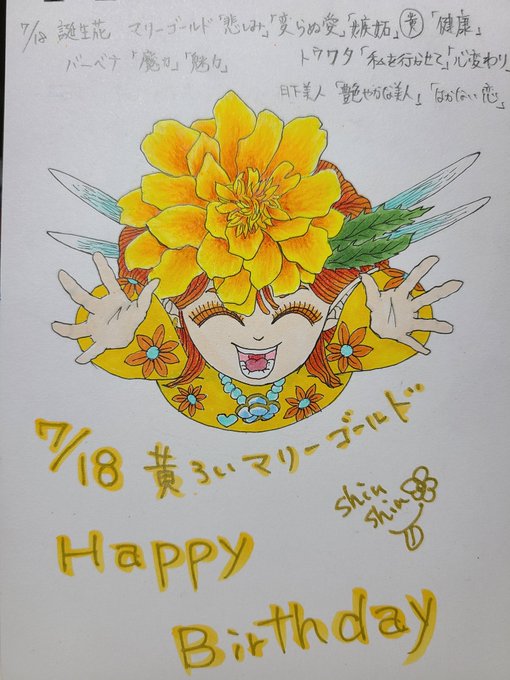 7/18 誕生花 マリーゴールド「悲しみ」「変らぬ愛」「嫉妬」黄「健康」
バーベナ「魔力」「魅力」 トウワタ「私を行かせて」「心変わり」
月下美人「艶やかな美人」「はかない恋」
7/18 黄ろいマリーゴールド
shin
shin
Happy
Birthday